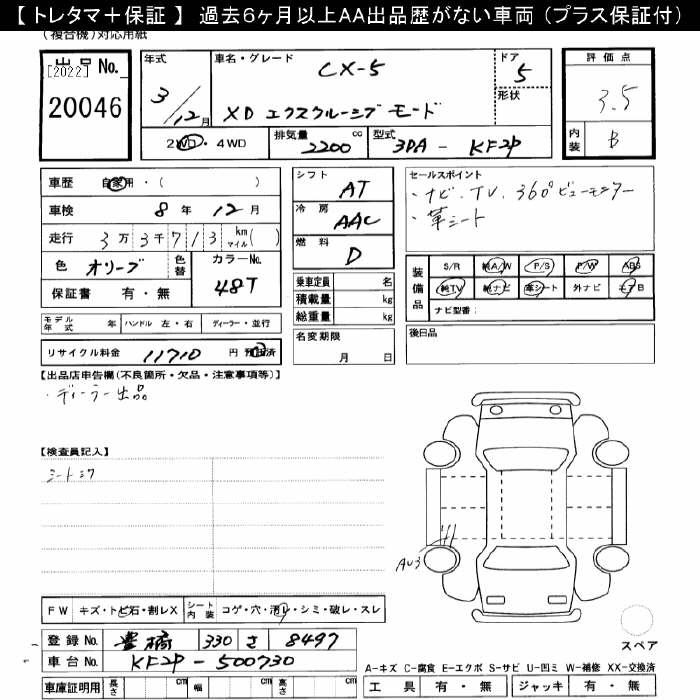 【 トレタマ＋保証 】 過去６ヶ月以上AA出品歴がない車両（プラス保証付）
（複合機）対応用紙
出品 No.
[2022]
20046
年式
3/12月
車名・グレード
CX-5
XD エクスクルーシブ モード
ドア
5
形状
評価点
3.5
内装
B
2WD・4WD
排気量
2200 cc
型式
3DA - KF2P
車歴 自家用・（ ）
車検 8年 12月
走行 3万3千713 km マイル（ ）
色 オリーブ
色替
カラーNo.
48T
保証書 有・無
シフト
AT
冷房
AAC
燃料
D
セールスポイント
・ナビ、TV、360°ビューモニター
・革シート
乗車定員 名
積載量 kg
総重量 kg
装備品
S/R 純A/W P/S P/W ABS
純TV 純ナビ 革シート 外ナビ エアB
ナビ型番：
モデル年式 年 ハンドル 左・右 ディーラー・並行
名変期限
月 日
後日品
リサイクル料金 11710 円 預託済
【出品店申告欄（不良箇所・欠品・注意事項等）】
・ディーラー出品
【検査員記入】
シートシワ
AU3
FW キズ・トビ石・割レX
シート内装 コゲ・穴・汚レ・シミ・破レ・スレ
登録 No. 豊橋 330 さ 8497
車台 No. KF2P - 500730
スペア
A-キズ C-腐食 E-エクボ S-サビ U-凹ミ W-補修 XX-交換済
車庫証明用 長さ cm 幅 cm 高さ cm
工具 有・無 ジャッキ 有・無